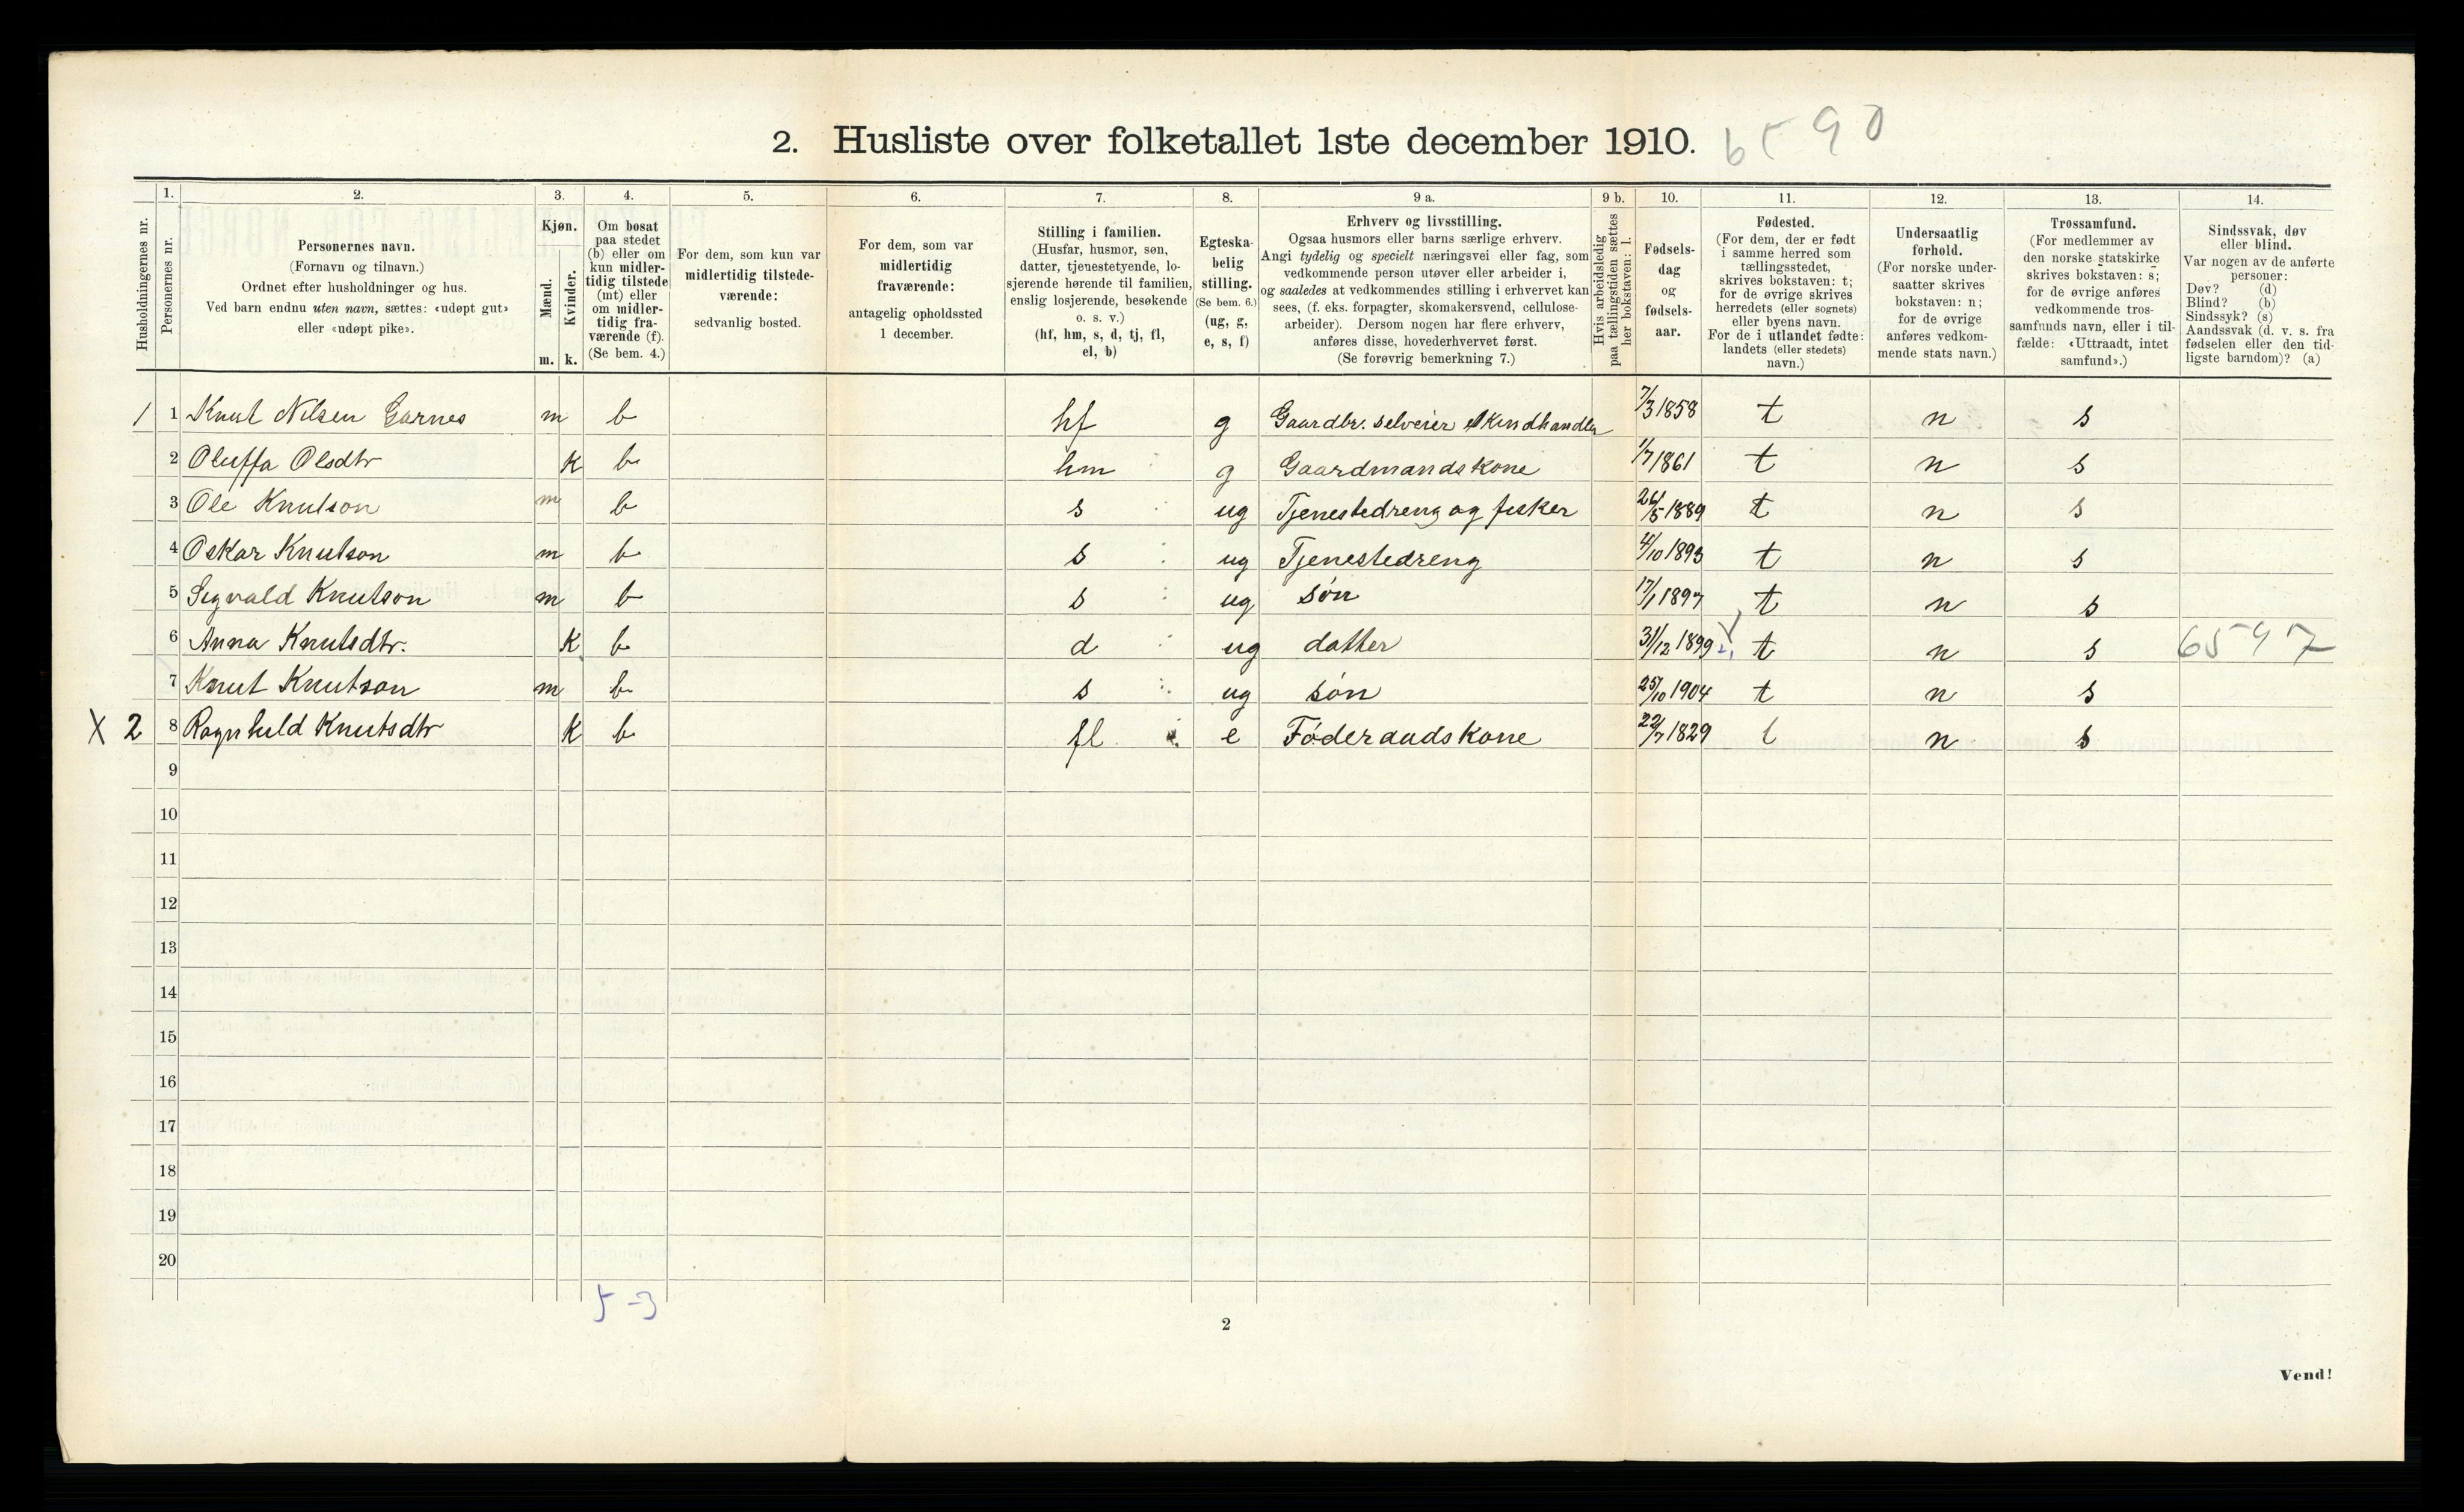 2. Husliste over folketallet 1ste december 1910. 6590
Husholdningernes nr.
1.
Personernes nr.
2.
Personernes navn.
(Fornavn og tilnavn.)
Ordnet efter husholdninger og hus.
Ved barn endnu uten navn, sættes: «udøpt gut»
eller «udøpt pike».
3.
Kjøn.
Mænd.
Kvinder.
m. k.
4.
Om bosat
paa stedet
(b) eller om
kun midler-
tidig tilstede
(mt) eller
om midler-
tidig fra-
værende (f).
(Se bem. 4.)
5.
For dem, som kun var
midlertidig tilstede-
værende:
sedvanlig bosted.
6.
For dem, som var
midlertidig
fraværende:
antagelig opholdssted
1 december.
7.
Stilling i familien.
(Husfar, husmor, søn,
datter, tjenestetyende, lo-
sjerende hørende til familien,
enslig losjerende, besøkende
o. s. v.)
(hf, hm, s, d, tj, fl,
el, b)
8.
Egteska-
belig
stilling.
(Se bem. 6.)
(ug, g,
e, s, f)
9 a.
Erhverv og livsstilling.
Ogsaa husmors eller barns særlige erhverv.
Angi tydelig og specielt næringsvei eller fag, som
vedkommende person utøver eller arbeider i,
og saaledes at vedkommendes stilling i erhvervet kan
sees, (f. eks. forpagter, skomakersvend, cellulose-
arbeider). Dersom nogen har flere erhverv,
anføres disse, hovederhvervet først.
(Se forøvrig bemerkning 7.)
9 b.
Hvis arbeidsledig
paa tællingstiden sættes
her bokstaven: l.
10.
Fødsels-
dag
og
fødsels-
aar.
11.
Fødested.
(For dem, der er født
i samme herred som
tællingsstedet,
skrives bokstaven: t;
for de øvrige skrives
herredets (eller sognets)
eller byens navn.
For de i utlandet fødte:
landets (eller stedets)
navn.)
12.
Undersaatlig
forhold.
(For norske under-
saatter skrives
bokstaven: n;
for de øvrige
anføres vedkom-
mende stats navn.)
13.
Trossamfund.
(For medlemmer av
den norske statskirke
skrives bokstaven: s;
for de øvrige anføres
vedkommende tros-
samfunds navn, eller i til-
fælde: «Uttraadt, intet
samfund».)
14.
Sindssvak, døv
eller blind.
Var nogen av de anførte
personer:
Døv? (d)
Blind? (b)
Sindssyk? (s)
Aandssvak (d. v. s. fra
fødselen eller den tid-
ligste barndom)? (a)
1 1 Knut Nilsen Garnes m b hf g Gaardbr. selveier Skindhandler 7/3 1858 t n s
2 Oluffa Olsdtr K b hm g Gaardmandskone 1/7 1861 t n s
3 Ole Knutson m b s ug Tjenestedreng og fisker 26/5 1889 t n s
4 Oskar Knutson m b s ug Tjenestedreng 4/10 1893 t n s
5 Sigvald Knutson m b s ug søn 17/1 1897 t n s
6 Anna Knutsdtr. K b d ug datter 31/12 1899 t n s 6597
7 Knut Knutson m b s ug søn 25/10 1904 t n s
X 2 8 Ragnhild Knutsdtr K b fl e Føderaadskone 22/7 1829 t n s
9
10
11
12
13
14
15
16
17
18
19
20
5-3
2
Vend!